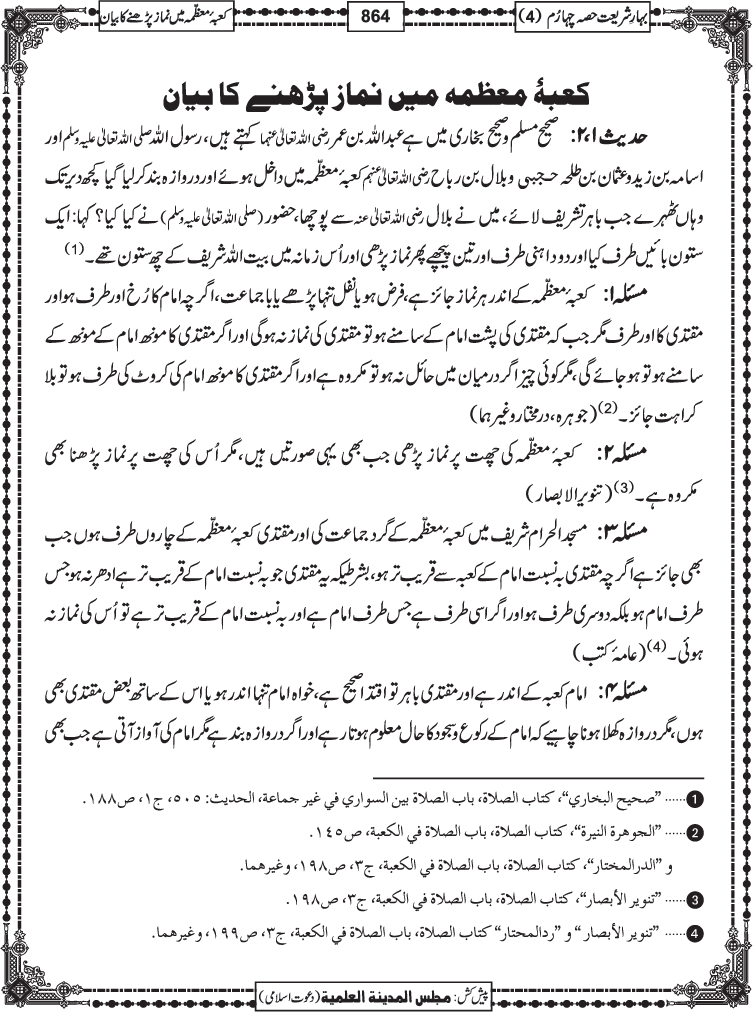 بہارِ شریعت حصہ چہارم (4)
864
کعبۂ معظّمہ میں نماز پڑھنے کا بیان
کعبۂ معظمہ میں نماز پڑھنے کا بیان
حدیث ۱،۲: صحیح مسلم و صحیح بخاری میں ہے عبداللہ بن عمر رضی اللہ تعالیٰ عنہما کہتے ہیں، رسول اللہ صلی اللہ تعالیٰ علیہ وسلم اور
اسامہ بن زید و عثمان بن طلحہ حجبی و بلال بن رباح رضی اللہ تعالیٰ عنہم کعبۂ معظّمہ میں داخل ہوئے اور دروازہ بند کر لیا گیا کچھ دیر تک
وہاں ٹھہرے جب باہر تشریف لائے، میں نے بلال رضی اللہ تعالیٰ عنہ سے پوچھا، حضور (صلی اللہ تعالیٰ علیہ وسلم) نے کیا کیا؟ کہا: ایک
ستون بائیں طرف کیا اور دو داہنی طرف اور تین پیچھے پھر نماز پڑھی اور اُس زمانہ میں بیت اللہ شریف کے چھ ستون تھے۔ (1)
مسئلہ ۱: کعبۂ معظّمہ کے اندر ہر نماز جائز ہے، فرض ہو یا نفل تنہا پڑھے یا با جماعت، اگرچہ امام کا رُخ اور طرف ہو اور
مقتدی کا اور طرف مگر جب کہ مقتدی کی پشت امام کے سامنے ہو تو مقتدی کی نماز نہ ہوگی اور اگر مقتدی کا مونھ امام کے مونھ کے
سامنے ہو تو ہو جائے گی، مگر کوئی چیز اگر درمیان میں حائل نہ ہو تو مکروہ ہے اور اگر مقتدی کا مونھ امام کی کروٹ کی طرف ہو تو بلا
کراہت جائز۔ (2) (جوہرہ، درمختار وغیرہما)
مسئلہ ۲: کعبۂ معظّمہ کی چھت پر نماز پڑھی جب بھی یہی صورتیں ہیں، مگر اُس کی چھت پر نماز پڑھنا بھی
مکروہ ہے۔ (3) (تنویر الابصار)
مسئلہ ۳: مسجد الحرام شریف میں کعبۂ معظّمہ کے گرد جماعت کی اور مقتدی کعبۂ معظّمہ کے چاروں طرف ہوں جب
بھی جائز ہے اگرچہ مقتدی بہ نسبت امام کے کعبہ سے قریب تر ہو، بشرطیکہ یہ مقتدی جو بہ نسبت امام کے قریب تر ہے ادھر نہ ہو جس
طرف امام ہو بلکہ دوسری طرف ہو اور اگر اسی طرف ہے جس طرف امام ہے اور بہ نسبت امام کے قریب تر ہے تو اُس کی نماز نہ
ہوئی۔ (4) (عامۂ کتب)
مسئلہ ۴: امام کعبہ کے اندر ہے اور مقتدی باہر تو اقتدا صحیح ہے، خواہ امام تنہا اندر ہو یا اس کے ساتھ بعض مقتدی بھی
ہوں، مگر دروازہ کھلا ہونا چاہیے کہ امام کے رکوع و سجود کا حال معلوم ہوتا رہے اور اگر دروازہ بند ہے مگر امام کی آواز آتی ہے جب بھی
1 ...... ”صحیح البخاري“، کتاب الصلاة، باب الصلاة بین السواري في غیر جماعة، الحدیث: ۵۰۵، ج۱، ص۱۸۸.
2 ...... ”الجوھرة النیرة“، کتاب الصلاة، باب الصلاة في الکعبة، ص۱۴۵.
و ”الدرالمختار“، کتاب الصلاة، باب الصلاة في الکعبة، ج۳، ص۱۹۸، وغیرھما.
3 ...... ”تنویر الأبصار“، کتاب الصلاة، باب الصلاة في الکعبة، ج۳، ص۱۹۸.
4 ...... ”تنویر الأبصار“ و ”ردالمحتار“ کتاب الصلاة، باب الصلاة في الکعبة، ج۳، ص۱۹۹، وغیرھما.
پیش کش: مجلس المدینة العلمیة (دعوتِ اسلامی)